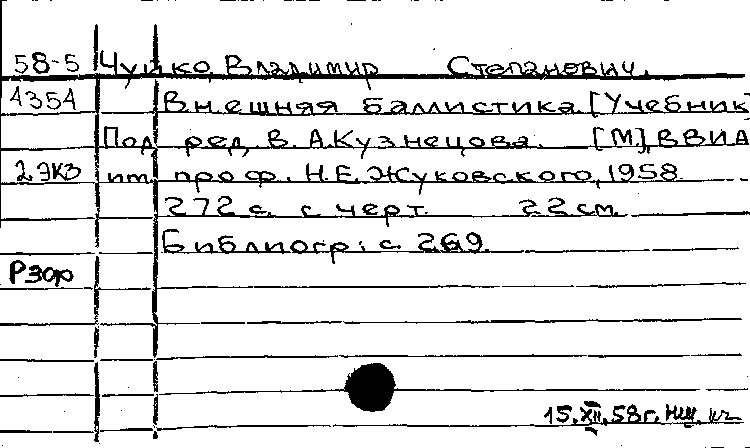 58-5 Чуйко, Владимир Степанович.
4354 Внешняя баллистика. [Учебник]
Под ред. В. А. Кузнецова. [М.], ВВИА
2 экз им. проф. Н. Е. Жуковского, 1958.
272 с. с черт. 22 см.
Библиогр: с. 269.
15.XII.58г.